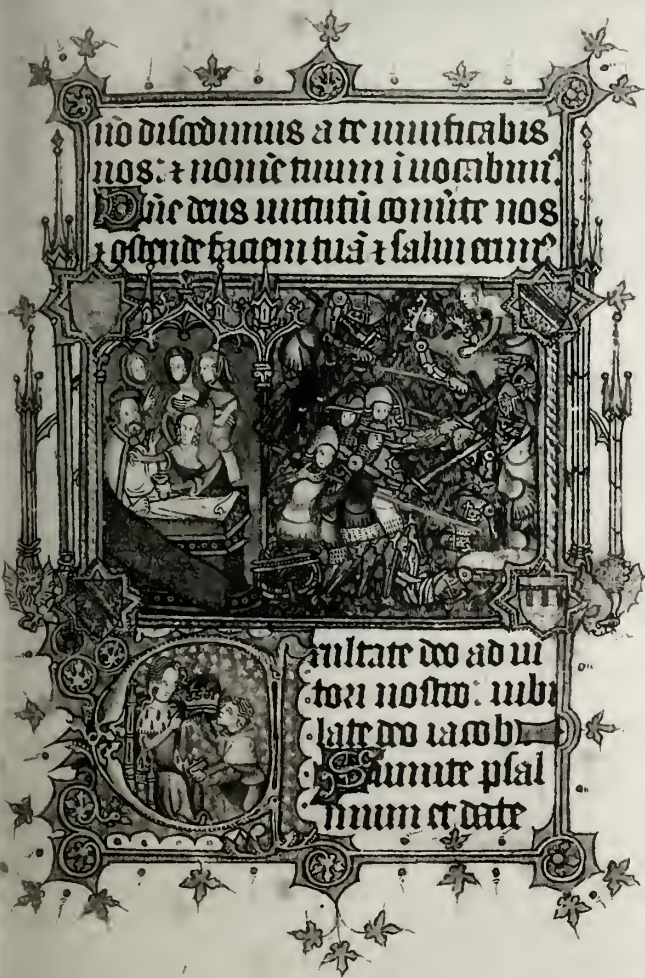 nō discedimus a te uiuificabis
nos: ⁊ nomē tuum īuocabimꝰ
Dn̄e deus uirtutū conūte nos
⁊ ostende faciem tuā ⁊ salui erimꝰ
Exultate deo ad iu
tori nostro: iubi
late deo iacob
Sumite psal
mum et date